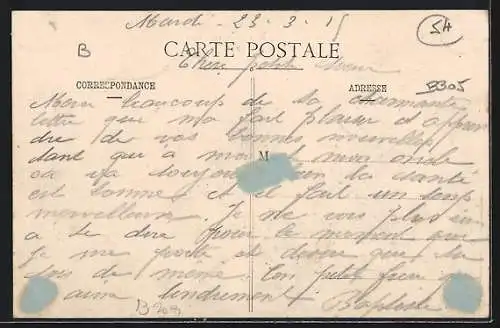 Mardi 23-3-15
54
B
CARTE POSTALE
Chère petite Sœur
CORRESPONDANCE
ADRESSE
B305
Merci beaucoup de ta charmante
lettre que ma fait plaisir et appren
dre de vos bonnes nouvelles
tant que a moi
M
ca va toujours bien la santé
est bonne et il fait un temps
merveilleux. Je ne vois plus rien
a te dire pour le moment que
je me porte et desire que tu
sois de meme. Ton petit frère qui
aime tendrement Baptiste